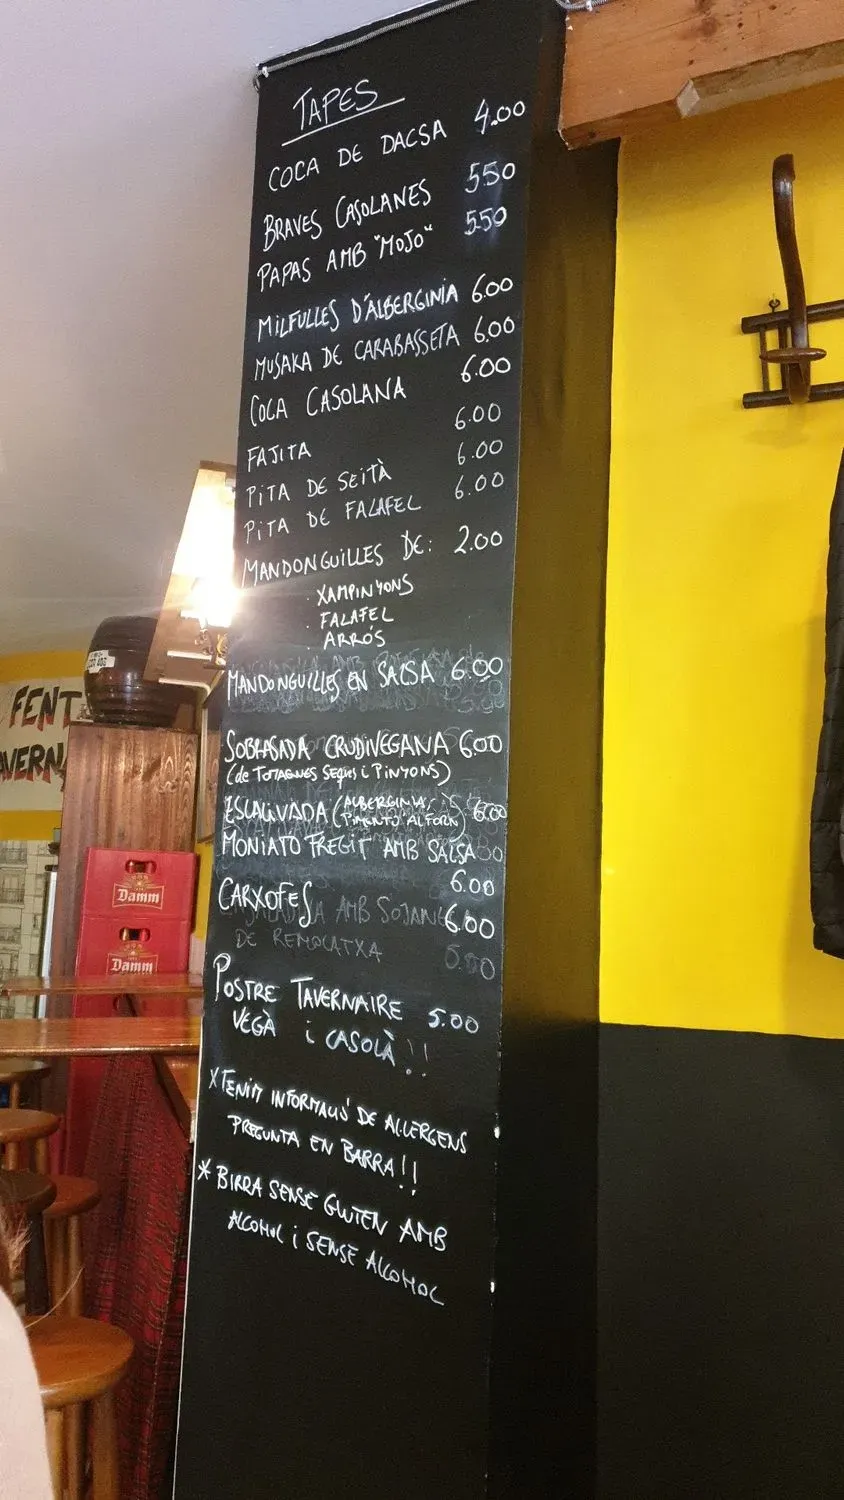 TAPES
COCA DE DACSA 4.00
BRAVES CASOLANES 5.50
PAPAS AMB "MOJO" 5.50
MILFULLES D'ALBERGINIA 6.00
MUSAKA DE CARABASSETA 6.00
COCA CASOLANA 6.00
FAJITA 6.00
PITA DE SEITÀ 6.00
PITA DE FALAFEL 6.00
MANDONGUILLES DE: 2.00
. XAMPINYONS
. FALAFEL
. ARRÓS
MANDONGUILLES EN SALSA 6.00
SOBRASADA CRUDIVEGANA 6.00
(de TOMAQUES SEQUES i PINYONS)
ESCALIVADA (ALBERGINIA, 6.00
PIMENTÓ AL FORN)
MONIATO FREGIT AMB SALSA
6.00
CARXOFES 6.00
AMB SOJA
DE REMOLATXA
POSTRE TAVERNAIRE 5.00
VEGÀ i CASOLÀ!!
*TENIM INFORMACIÓ DE AL.LERGENS
PREGUNTA EN BARRA!!
* BIRRA SENSE GLUTEN AMB
ALCOHOL i SENSE ALCOHOL
FENT
AVERNA
Damm
Damm